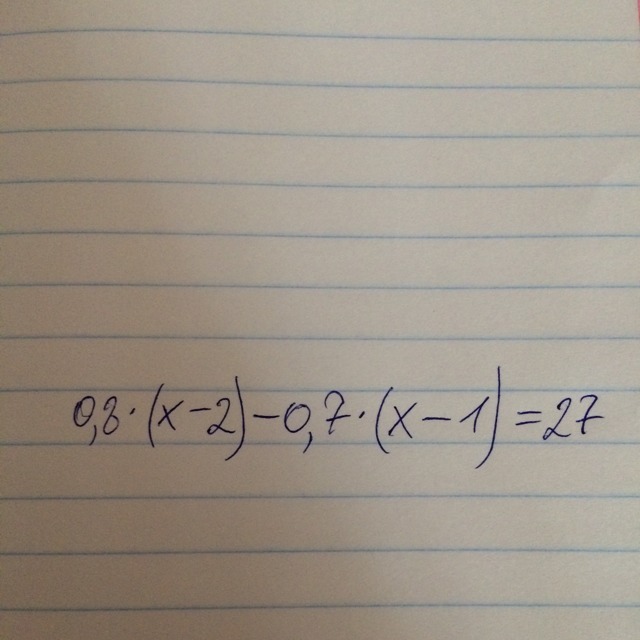 0,8·(x-2)-0,7·(x-1)=27